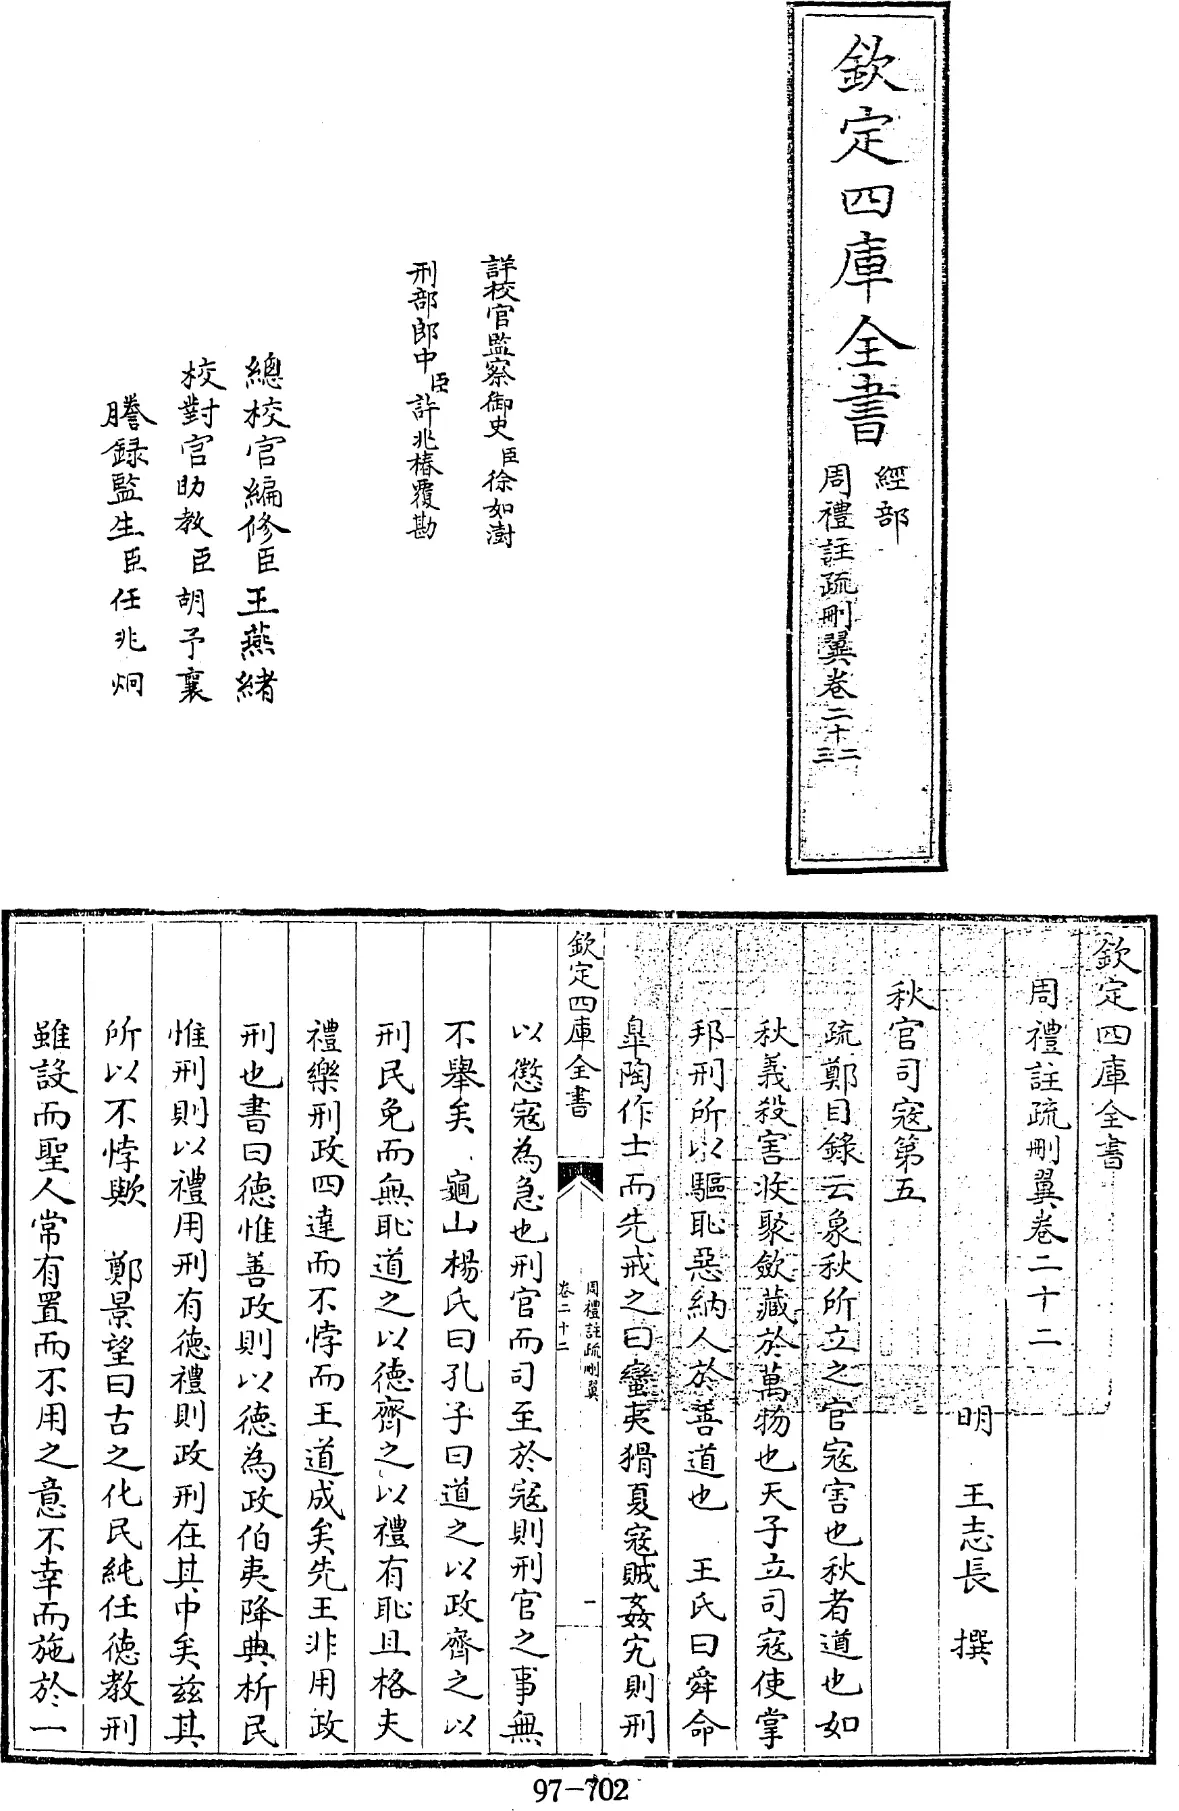 欽定四庫全書
經部
周禮註疏刪翼卷二十二
三
詳校官監察御史臣徐如澍
刑部郎中臣許兆椿覆勘
總校官編修臣王燕緒
校對官助教臣胡予襄
謄録監生臣任兆炯
欽定四庫全書
周禮註疏刪翼卷二十二
明 王志長 撰
秋官司寇第五
疏鄭目錄云象秋所立之官寇害也秋者遒也如
秋義殺害收聚斂藏於萬物也天子立司寇使掌
邦刑所以驅恥惡納人於善道也 王氏曰舜命
臯陶作士而先戒之曰蠻夷猾夏寇賊姦宄則刑
欽定四庫全書
周禮註疏刪翼
卷二十二
一
以懲寇為急也刑官而司至於寇則刑官之事無
不舉矣 龜山楊氏曰孔子曰道之以政齊之以
刑民免而無恥道之以德齊之以禮有恥且格夫
禮樂刑政四達而不悖而王道成矣先王非用政
刑也書曰德惟善政則以德為政伯夷降典析民
惟刑則以禮用刑有德禮則政刑在其中矣茲其
所以不悖歟 鄭景望曰古之化民純任德教刑
雖設而聖人常有置而不用之意不幸而施於一
97-702